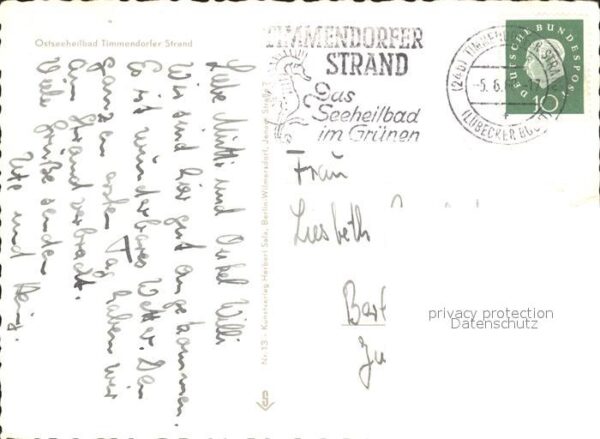 Ostseeheilbad Timmendorfer Strand
Liebe Mutti und Onkel Willi
Wir sind hier gut angekommen.
Es ist wunderbares Wetter. Den
ganzen ersten Tag haben wir
am Strand verbracht.
Viele Grüße senden
Ute und Heinz.
Nr. 13 - Kunstverlag Herbert Salz, Berlin-Wilmersdorf, Jenaer Straße 7
TIMMENDORFER
STRAND
Das
Seeheilbad
im Grünen
(24b) TIMMENDORFER STRAND
-5.6.
(LÜBECKER BUCHT)
DEUTSCHE BUNDESPOST
10
Frau
Liesbeth
privacy protection
Datenschutz